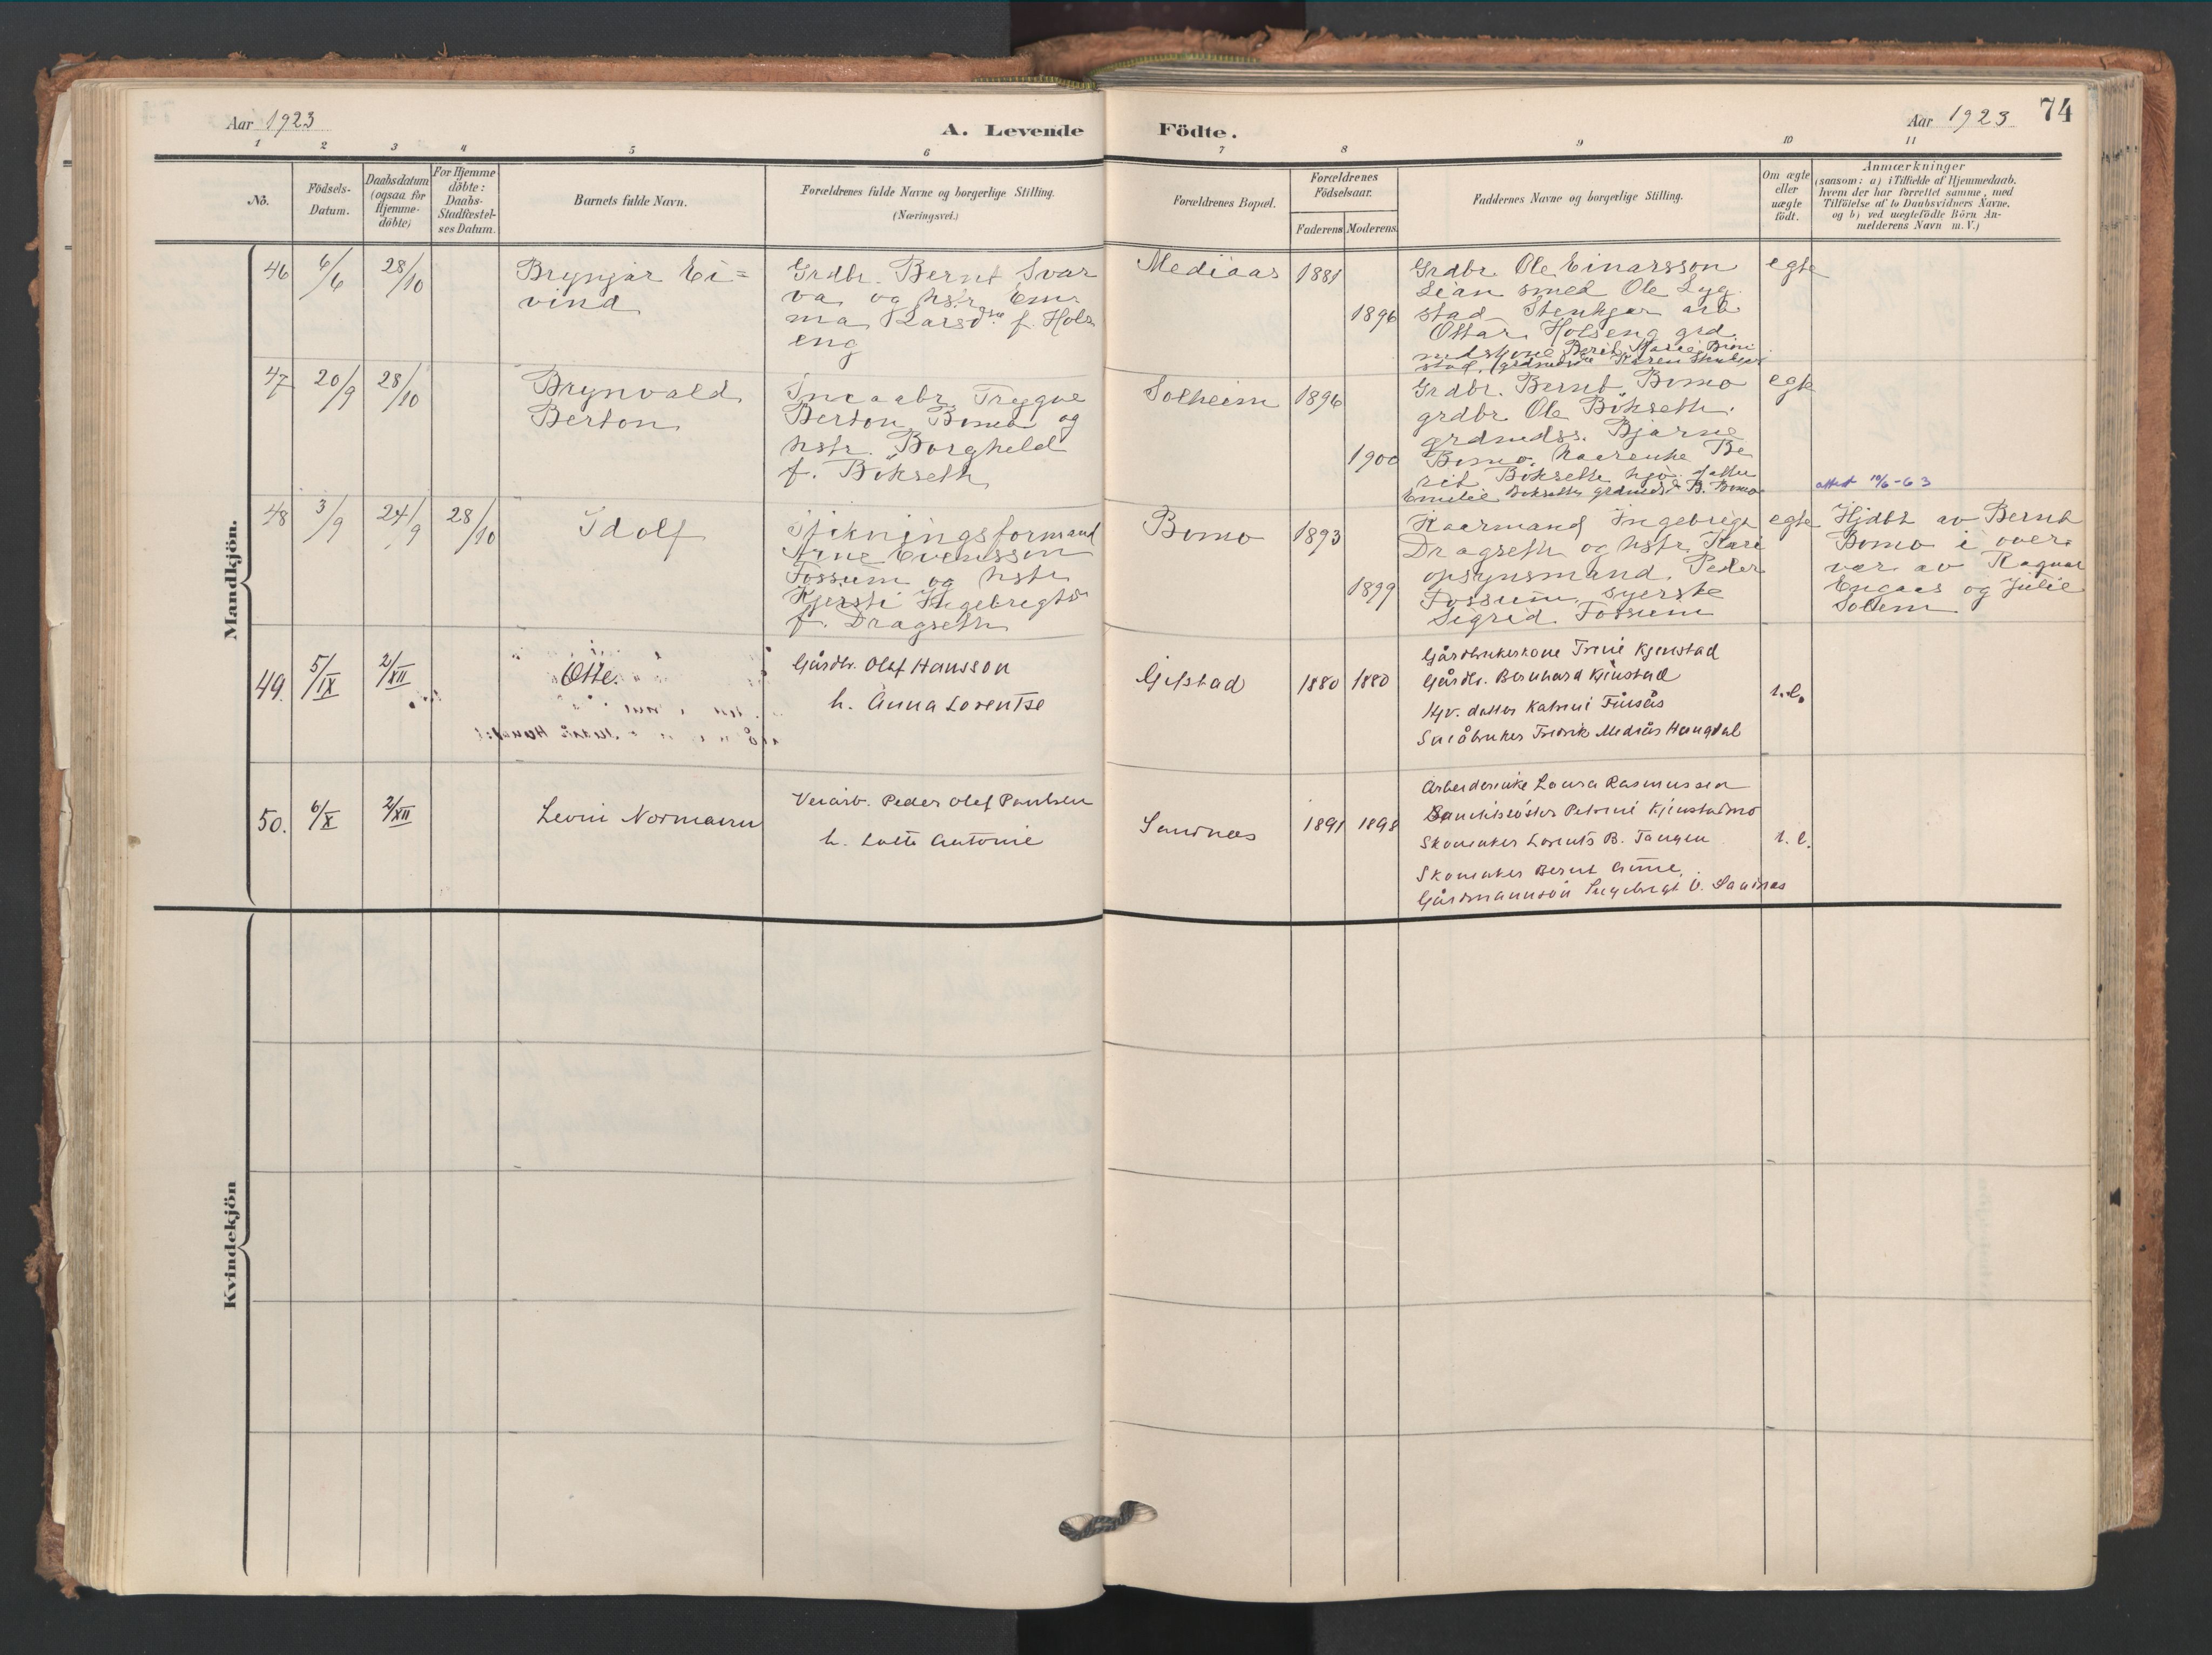 Aar 1923
A. Levende
Födte.
Aar 1923
74
1 2 3 4 5 6 7 8 9 10 11
No.
Födsels-
Datum.
Daabsdatum
(ogsaa for
Hjemme-
döbte)
For Hjemme
döbte:
Daabs-
Stadfæstel-
ses Datum.
Barnets fulde Navn.
Forældrenes fulde Navne og borgerlige Stilling.
(Næringsvei.)
Forældrenes Bopæl.
Forældrenes
Födselsaar.
Faderens
Moderens
Faddernes Navne og borgerlige Stilling.
Om ægte
eller
uægte
födt.
Anmærkninger
(saasom: a) i Tilfælde af Hjemmedaab.
hvem der har forrettet samme, med
Tilföielse af to Daabsvidners Navne.
og b) ved uægtefödte Börn An-
melderens Navn m. V.)
Mandkjön.
46
6/6
28/10
Brynjar Ei=
vind
Grdbr. Bernt Svar
va og hstr. Em
ma Larsd. f. Hols
eng
Mediaas
1881
1896
Grdbr. Ole Einarsson
Lian smed Ole Lyg
stad Stenkjer arb.
Ottar Holseng grd
mdskone Berit Marie
stad,
egte
47
20/9
28/10
Brynvald
Berton
Trygve
Berton Bomo og
hstr. Borghild
f. Bökseth
Solheim
1896
1900
Grdbr. Bernt Bomo
grdbr. Ole Bökseth.
grdmdss. Bjarne
Bomo, Be
rit Bökseth hjv. datter
Emilie Bökseth grdmdsd. B. Bomo
egte
attest 10/6-63
48
3/9
24/9
28/10
Idolf
Stikningsformand
Arne Evensson
Fossum og hstr.
Kjersti Ingebrigtsd
f. Dragseth
Bomo
1893
1899
Kaarmand Ingebrigt
Dragseth og hstr. Kari
opsynsmand Peder
Fossum, syerske
Sigrid Fossum
egte
Hjdbt av Bernt
Bomo i over
vær av Ragnar
Engaas og Julie
Solem
49.
5/IX
2/XII
Otte.
Gårdbr. Olaf Hansson
h. Anna Lorentse
Gifstad
1880
1880
Gårdbrukerkone Trine Kjenstad
Gårdbr. Bernhard Kjenstad
Hjv. datter Katrine Finsås
Småbruker Fredrik Mediås Haugdal
50.
6/X
2/XII
Levin Normann
Veiarb. Peder Olaf Paulsen
h. Lotte Antonie
Sandnes
1891
1898
Arbeiderenke Laura Rasmussen
Petrine Kjenstadmo
Skomaker Lorents B. Tangen
Skomaker Bernt
Gårdmannsön Ingebrigt O. Sandnes
Kvindekjön